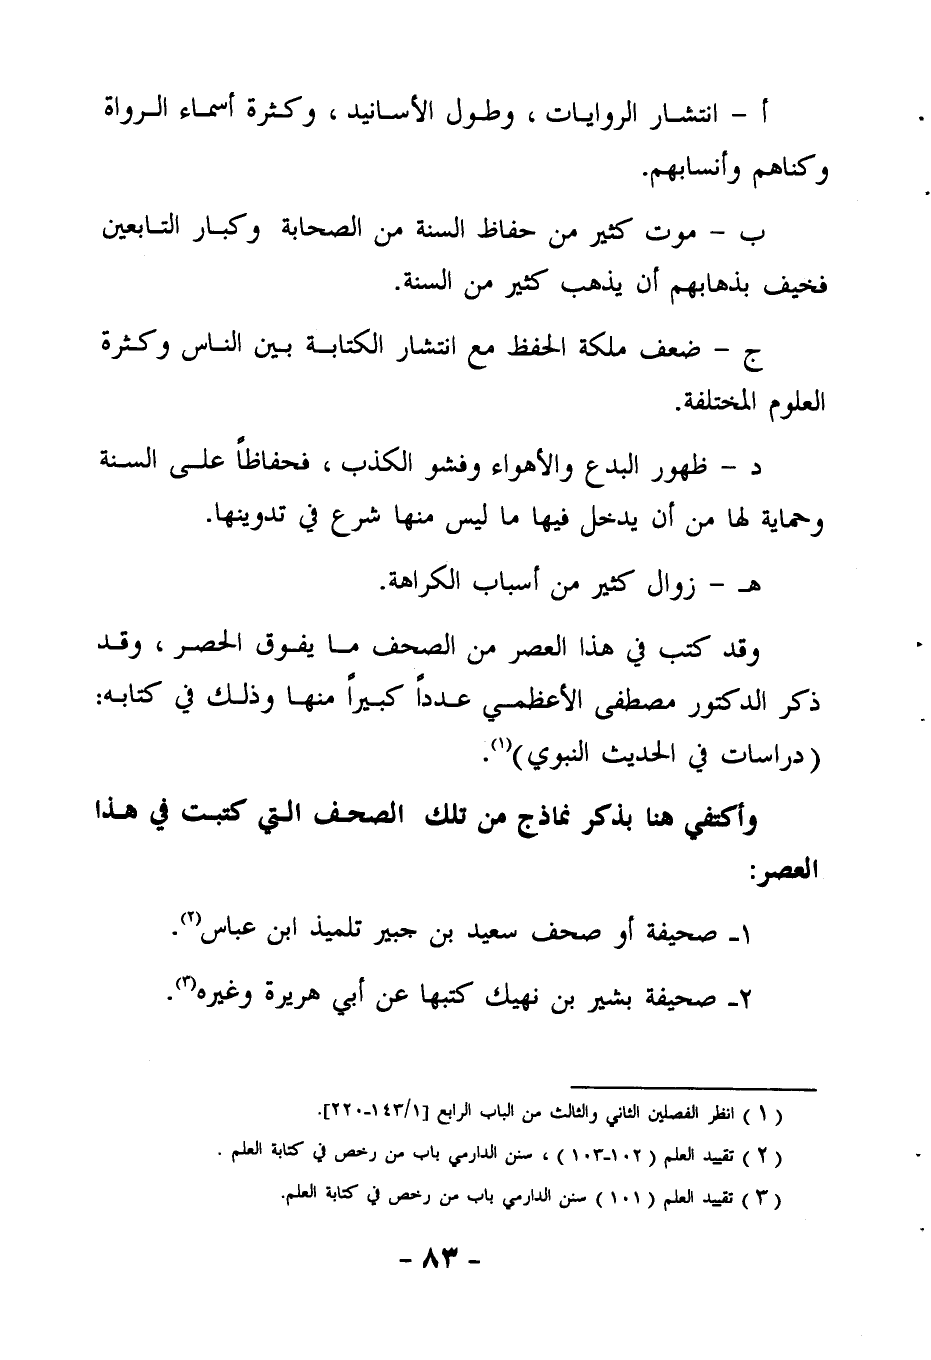 أ - انتشار الروايات ، وطول الأسانيد ، وكثرة أسماء الرواة
وكناهم وأنسابهم.
ب - موت كثير من حفاظ السنة من الصحابة وكبار التابعين
فخيف بذهابهم أن يذهب كثير من السنة.
ج - ضعف ملكة الحفظ مع انتشار الكتابة بين الناس وكثرة
العلوم المختلفة.
د - ظهور البدع والأهواء وفشو الكذب ، فحفاظاً على السنة
وحماية لها من أن يدخل فيها ما ليس منها شرع في تدوينها.
هـ - زوال كثير من أسباب الكراهة.
وقد كتب في هذا العصر من الصحف ما يفوق الحصر ، وقد
ذكر الدكتور مصطفى الأعظمي عدداً كبيراً منها وذلك في كتابه:
(دراسات في الحديث النبوي)(١).
وأكتفي هنا بذكر نماذج من تلك الصحف التي كتبت في هذا
العصر:
١- صحيفة أو صحف سعيد بن جبير تلميذ ابن عباس(٢).
٢- صحيفة بشير بن نهيك كتبها عن أبي هريرة وغيره(٣).
(١) انظر الفصلين الثاني والثالث من الباب الرابع [١٤٣/١-٢٢٠].
(٢) تقييد العلم (١٠٢-١٠٣) ، سنن الدارمي باب من رخص في كتابة العلم .
(٣) تقييد العلم (١٠١) سنن الدارمي باب من رخص في كتابة العلم.
- ٨٣ -